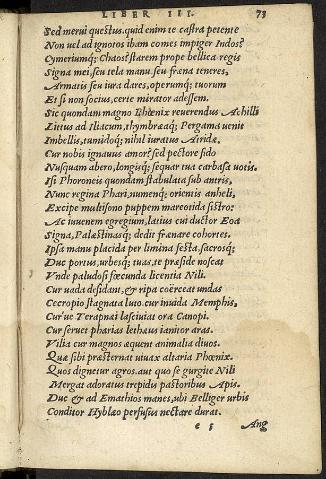 LIBER III. 73
Sed merui questus. quid enim te castra petente
Non uel ad ignotos ibam comes impiger Indos?
Cymeriumq; Chaos? starem prope bellica regis
Signa mei, seu tela manu, seu fræna teneres,
Armatis seu iura dares, operumq; tuorum
Et si non socius, certe mirator adessem.
Sic quondam magno Phœnix reuerendus Achilli
Littus ad Iliacum, thymbræaq; Pergama uenit
Imbellis, tumidoq; nihil iuratus Atridæ.
Cur nobis ignauus amor? sed pectore fido
Nusquam abero, longisq; sequar tua carbasa uotis.
Isi Phoroneis quondam stabulata sub antris,
Nunc regina Phari, numenq; orientis anheli,
Excipe multisono puppem mareotida sistro:
Ac iuuenem egregium, latius cui ductor Eoa
Signa, Palæstinasq; dedit frænare cohortes.
Ipsa manu placida per limina festa, sacrosq;
Duc portus, urbesq; tuas, te præside noscat
Vnde paludosi fœcunda licentia Nili.
Cur uada desidant, & ripa coërceat undas
Cecropio stagnata luto. cur inuida Memphis,
Cur'ue Terapnæi lasciuiat ora Canopi.
Cur seruet pharias lethæus ianitor aras.
Vilia cur magnos æquent animalia diuos.
Quæ sibi præsternat uiuax altaria Phœnix.
Quos dignetur agros. aut quo se gurgite Nili
Mergat adoratus trepidis pastoribus Apis.
Duc & ad Emathios manes, ubi Belliger urbis
Conditor Hyblæo persusus nectare durat.
e 3 Ang